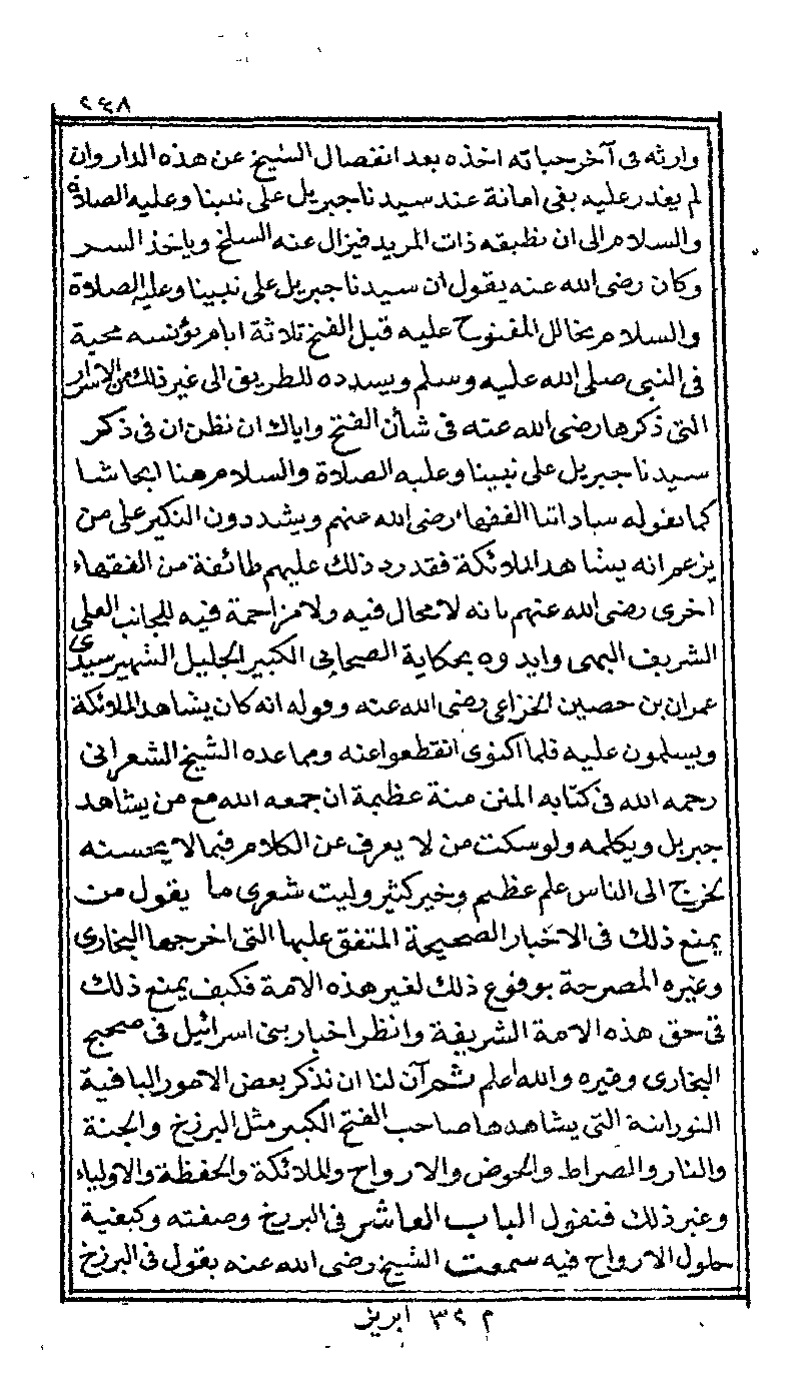 ٢٤٨
وارثه فى آخر حياته اخذه بعد انفصال الشيخ عن هذه الدار وان
لم يقدر عليه بقى امانة عند سيدنا جبريل على نبينا وعليه الصلاة
والسلام الى ان تطيقه ذات المريد فيزال عنه السلخ وياخذ السر
وكان رضى الله عنه يقول ان سيدنا جبريل على نبينا وعليه الصلاة
والسلام يخالل المفتوح عليه قبل الفتح ثلاثة ايام يؤنسه محبة
فى النبى صلى الله عليه وسلم ويسدده للطريق الى غير ذلك من الاسرار
التى ذكرها رضى الله عنه فى شأن الفتح واياك ان تظن ان فى ذكر
سيدنا جبريل على نبينا وعليه الصلاة والسلام هنا ايحاشا
كما يقوله ساداتنا الفقهاء رضى الله عنهم ويشددون النكير على من
يزعم انه يشاهد الملائكة فقد رد ذلك عليهم طائفة من الفقهاء
اخرى رضى الله عنهم بانه لا محال فيه ولا مزاحمة فيه للجانب العلى
الشريف البهى وايدوه بحكاية الصحابى الكبير الجليل الشهير سيدى
عمران بن حصين الخزاعى رضى الله عنه وقوله انه كان يشاهد الملائكة
ويسلمون عليه فلما اكتوى انقطعوا عنه ومما عده الشيخ الشعرانى
رحمه الله فى كتابه المنن منة عظيمة ان جمعه الله مع من يشاهد
جبريل ويكلمه ولو سكت من لا يعرف عن الكلام فيما لا يحسنه
لخرج الى الناس علم عظيم وخير كثير وليت شعرى ما يقول من
يمنع ذلك فى الاخبار الصحيحة المتفق عليها التى اخرجها البخارى
وغيره المصرحة بوقوع ذلك لغير هذه الامة فكيف يمنع ذلك
فى حق هذه الامة الشريفة وانظر اخبار بنى اسرائيل فى صحيح
البخارى وغيره والله اعلم ثم آن لنا ان نذكر بعض الامور الباقية
النورانية التى يشاهدها صاحب الفتح الكبير مثل البرزخ والجنة
والنار والصراط والحوض والارواح والملائكة والحفظة والاولياء
وغير ذلك فنقول الباب العاشر فى البرزخ وصفته وكيفية
حلول الارواح فيه سمعت الشيخ رضى الله عنه يقول فى البرزخ
م ٣٢ ابريز